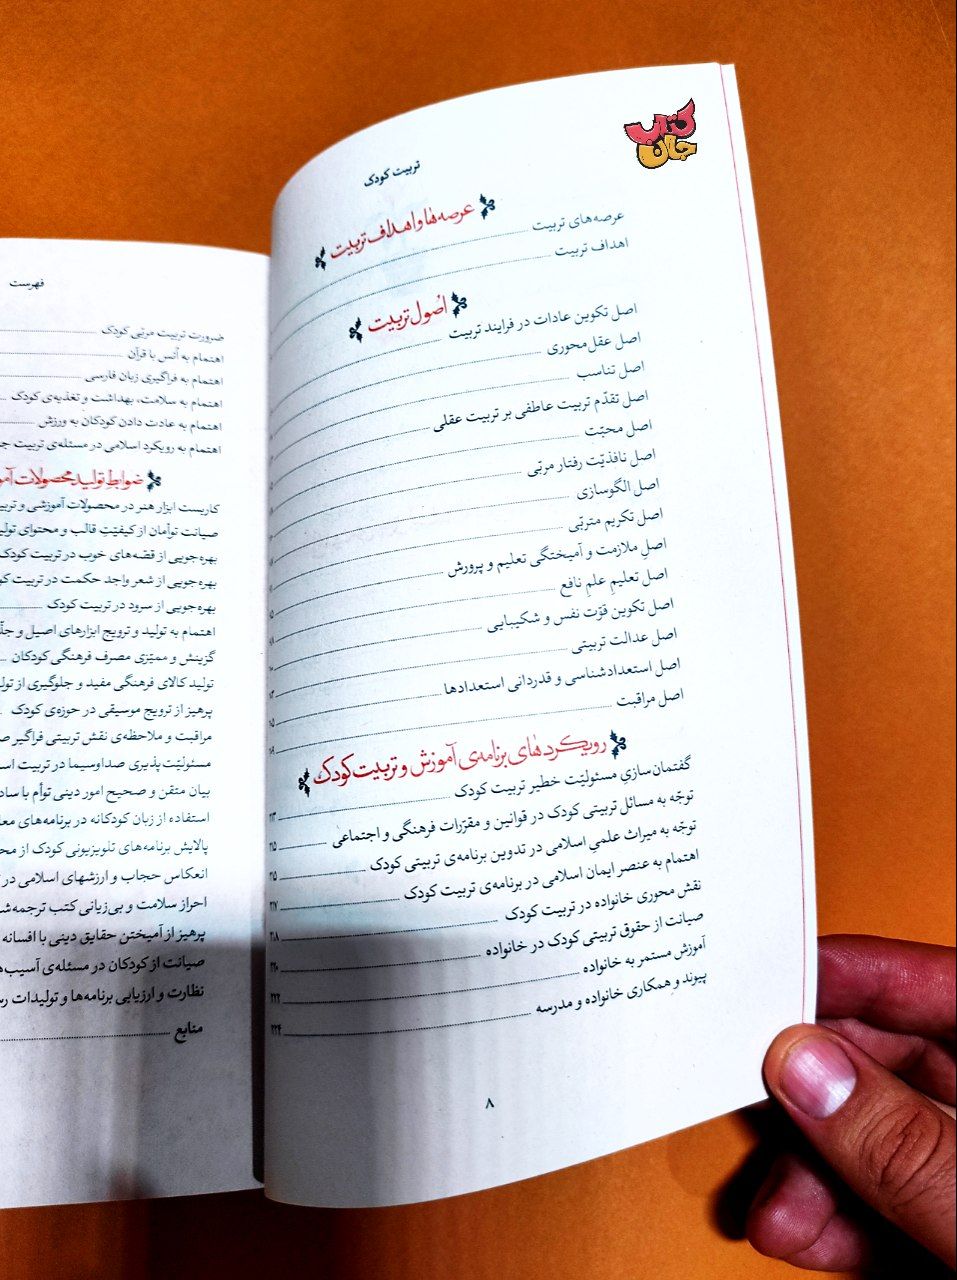 کتاب جان
تربیت کودک
عرصه‌ها و اهداف تربیت
عرصه‌های تربیت
اهداف تربیت
اصول تربیت
اصل تکوین عادات در فرایند تربیت
اصل عقل‌محوری
اصل تناسب
اصل تقدّم تربیت عاطفی بر تربیت عقلی
اصل محبّت
اصل نافذیّت رفتار مربّی
اصل الگوسازی
اصل تکریم متربّی
اصلِ ملازمت و آمیختگی تعلیم و پرورش
اصل تعلیمِ علمِ نافع
اصل تکوین قوّت نفس و شکیبایی
اصل عدالت تربیتی
اصل استعدادشناسی و قدردانی استعدادها
اصل مراقبت
رویکردهای برنامه‌ی آموزش و تربیت کودک
گفتمان‌سازیِ مسئولیّت خطیر تربیت کودک
توجّه به مسائل تربیتی کودک در قوانین و مقرّرات فرهنگی و اجتماعی
توجّه به میراث علمیِ اسلامی در تدوین برنامه‌ی تربیتی کودک
اهتمام به عنصر ایمان اسلامی در برنامه‌ی تربیت کودک
نقش محوری خانواده در تربیت کودک
صیانت از حقوق تربیتی کودک در خانواده
آموزش مستمر به خانواده ۲۲۲
پیوند و همکاری خانواده و مدرسه ۲۲۴
۸
فهرست
ضرورت تربیت مربّی کودک
اهتمام به اُنس با قرآن
اهتمام به فراگیری زبان فارسی
اهتمام به سلامت، بهداشت و تغذیه‌ی کودک
اهتمام به عادت دادن کودکان به ورزش
اهتمام به رویکرد اسلامی در مسئله‌ی تربیت
ضوابط تولید محصولات
کاربست ابزار هنر در محصولات آموزشی و
صیانت توأمان از کیفیّتِ قالب و محتوای
بهره‌جویی از قصّه‌های خوب در تربیت کودک
بهره‌جویی از شعر واجد حکمت در تربیت
بهره‌جویی از سرود در تربیت کودک
اهتمام به تولید و ترویج ابزارهای اصیل و
گزینش و ممیّزی مصرف فرهنگی کودکان
تولید کالای فرهنگی مفید و جلوگیری از
پرهیز از ترویج موسیقی در حوزه‌ی کودک
مراقبت و ملاحظه‌ی نقش تربیتی فراگیر
مسئولیّت‌پذیری صداوسیما در تربیت
بیان متقن و صحیح امور دینی توأم با
استفاده از زبان کودکانه در برنامه‌های
پالایش برنامه‌های تلویزیونی کودک از
انعکاس حجاب و ارزشهای اسلامی در
احراز سلامت و بی‌زیانی کتب
پرهیز از آمیختن حقایق دینی با افسانه
صیانت از کودکان در مسئله‌ی
نظارت و ارزیابی برنامه‌ها و تولیدات
منابع